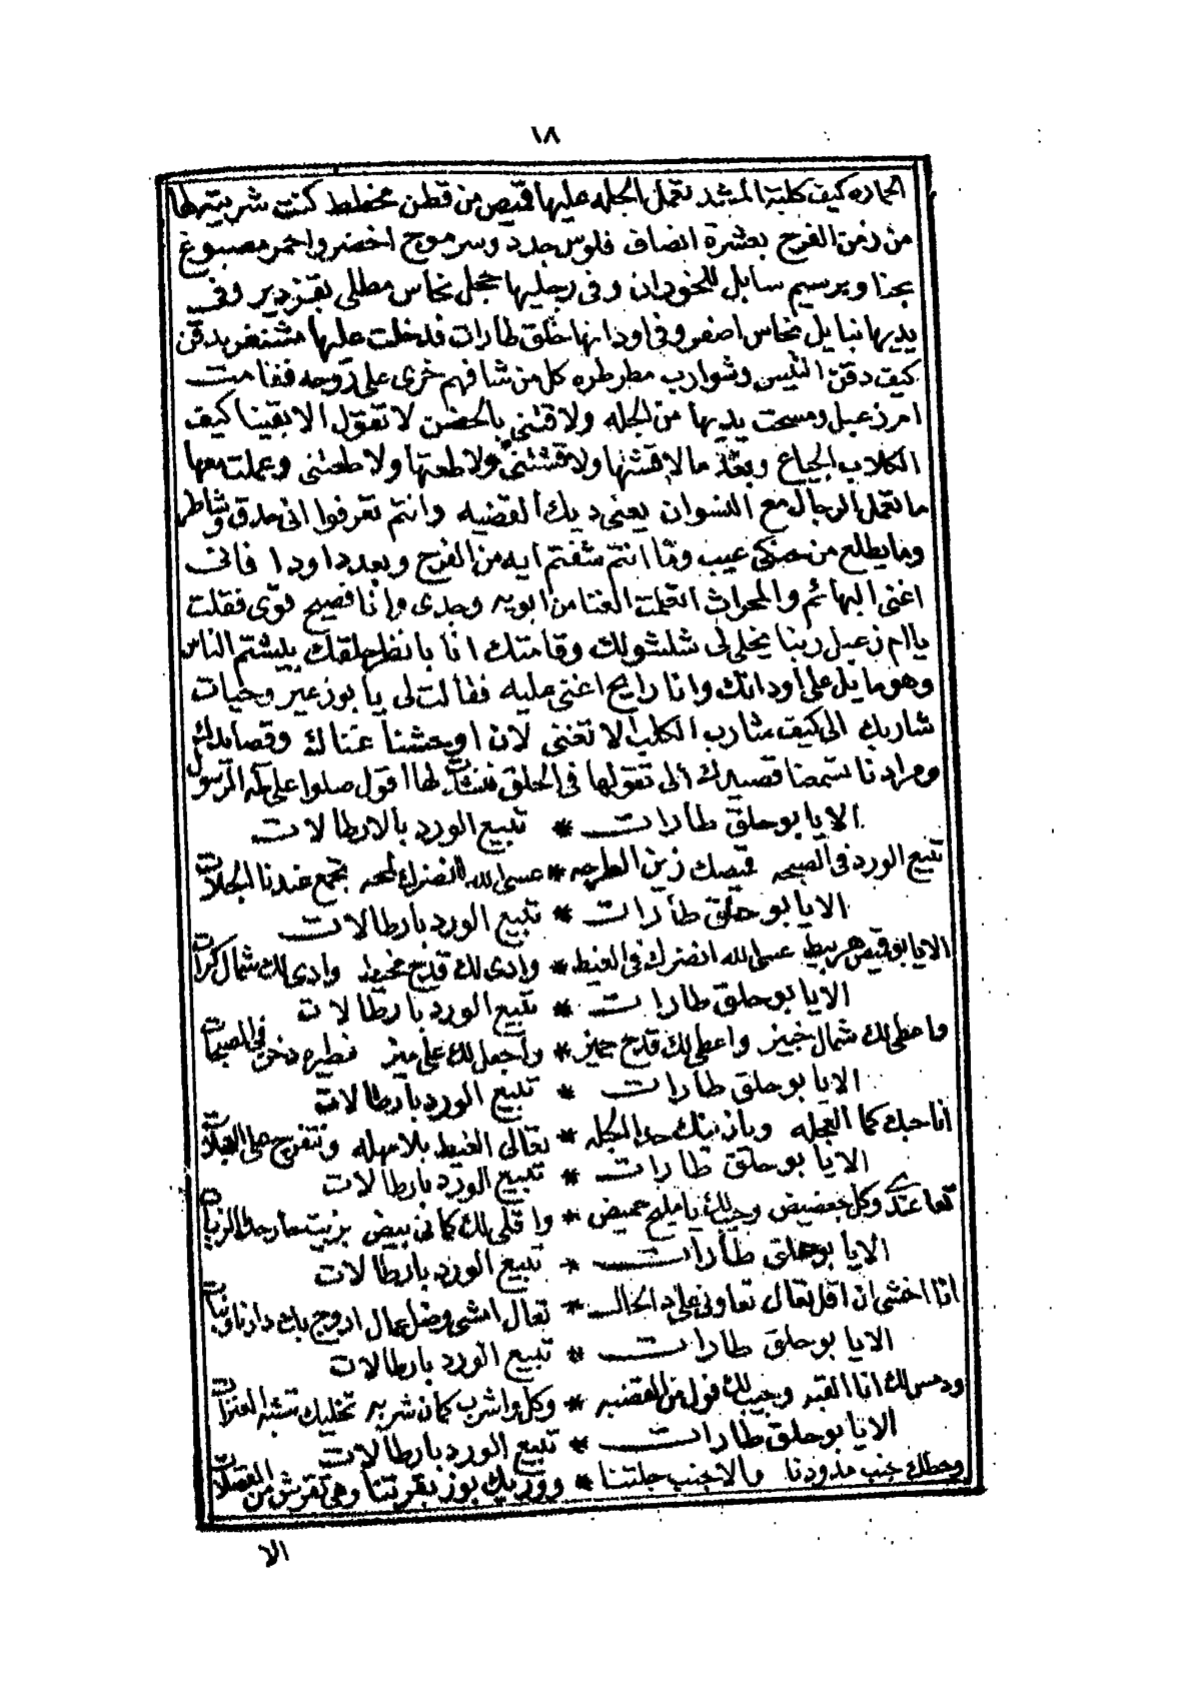 ١٨
الحاره كيف كلبة المشد تعمل الجله عليها قميص من قطن مخطط كنت شريتها
من زمن الفرح بعشرة انصاف فلوس جدد وسرموج اخضر واحمر مصبوغ
بحنا وبرسيم سابل للخودان وفى رجليها حجل نحاس مطلى بقزدير وفى
يديها نبايل نحاس اصفر وفى اودانها حلق طارات فدخلت عليها مشنفر بدقن
كيف دقن التيس وشوارب مطرطره كل من شافهم خرى على روحه فقامت
ام زعبل ومسحت يديها من الجله ولاقتنى بالحضن لا تقول الا بقينا كيف
الكلاب الجياع وبعد ما لاقشتها ولاقشتنى ولاطعتها ولاطعتنى وعملت معها
ما تعمل الرجال مع النسوان يعنى ديك القضيه وانتم تعرفوا انى حدق وشاطر
وما يطلع من حنكى عيب وما انتم شفتم ايه من الفرح وبعد داودا فانى
اغنى البهائم والمحراث اتعلمت الغنا من ابويه وجدى وانا فصيح قوى فقلت
يا ام زعبل ربنا يخلى لى شلشولك وقامتك انا بانظر حلقك بيلشتم الناس
وهو مايل على اودانك وانا رايح اغنى عليه فقالت لى يا بوزعبر وحيات
شاربك الى كيف شارب الكلب الا تغنى لان اوحشنا غناك وقصايدك
ومرادنا نسمعنا قصيدك الى تقولها فى الحلق فنشأت لها اقول صلوا على طه الرسول
الا يا بو حلق طارات * تبيع الورد بالارطالات
تبيع الورد فى الصيحه قميصك زين الطرحه * عسى الله انضرك لمحه تجمع عندنا الجلات
الا يا بو حلق طارات * تبيع الورد بارطالات
الا يا بو قميص هربيط عسى الله انضرك فى الغيط * وادى لك قدح مخيط وادى لك شمال كرات
الا يا بو حلق طارات * تبيع الورد بارطالات
واعطى لك شمال خبيز واعطى لك قدح جميز * واجعل لك على ميز فطيره دخن فى الصبحات
الا يا بو حلق طارات * تبيع الورد بارطالات
انا حبك كما العجله وبازنبك حد الجله * تعالى الغيط بلا مهله ونتفرج على العجلات
الا يا بو حلق طارات * تبيع الورد بارطالات
تعا عندى وكل بعضيض وجيب لك يا مليح حميض * واقلى لك كمانى بيض بزيت حار جد الزيات
الا يا بو حلق طارات * تبيع الورد بارطالات
انا اخشى ان اقل تعال تعاونى على د الحال * تعال امشى وضل عمال اروج بك دارنا وتبات
الا يا بو حلق طارات * تبيع الورد بارطالات
ودمس لك انا القدر وجيب لك فول من القضبه * وكل واشرب كمان شربه تخليك تشبه العنزات
الا يا بو حلق طارات * تبيع الورد بارطالات
وحطك جنب مدودنا والا جنب جلتنا * ووريك بوز بقرتنا وهى تقرش من القصلات
الا